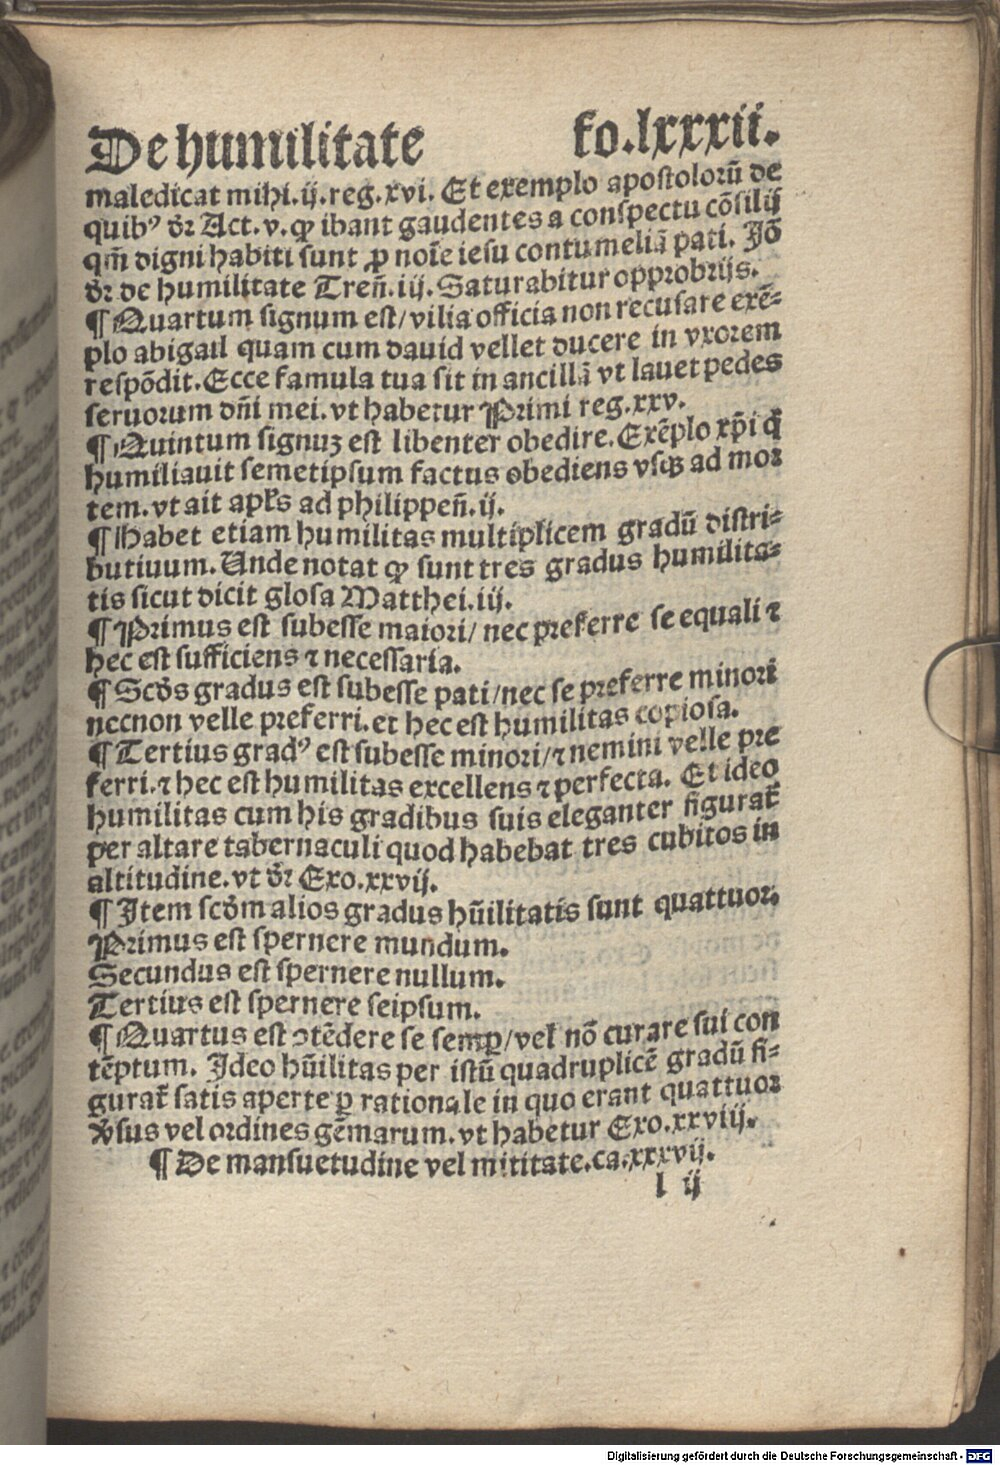 De humilitate fo.lxxxii.
maledicat mihi.ij.reg.xvi. Et exemplo apostolorū de
quibꝰ dr̄ Act.v.ꝙ ibant gaudentes a conspectu cōsilij
qm̄ digni habiti sunt ꝓ noīe iesu contumeliā pati. Jō
dr̄ de humilitate Treñ.iij. Saturabitur opprobrijs.
¶ Quartum signum est/vilia officia non recusare exē⸗
plo abigail quam cum dauid vellet ducere in vxorem
respōdit. Ecce famula tua sit in ancillā vt lauet pedes
seruorum dñi mei. vt habetur Primi reg.xxv.
¶ Quintum signuꝫ est libenter obedire. Exēplo xp̄i q̄
humiliauit semetipsum factus obediens vsqꝫ ad mor
tem. vt ait apl̄s ad philippeñ.ij.
¶ Habet etiam humilitas multiplicem gradū distri⸗
butiuum. Unde notat ꝙ sunt tres gradus humilita⸗
tis sicut dicit glosa Matthei.iij.
¶ Primus est subesse maiori/ nec preferre se equali ⁊
hec est sufficiens ⁊ necessaria.
¶ Scd̄s gradus est subesse pati/nec se preferre minori
necnon velle preferri. et hec est humilitas copiosa.
¶ Tertius gradꝰ est subesse minori/⁊ nemini velle pre
ferri.⁊ hec est humilitas excellens ⁊ perfecta. Et ideo
humilitas cum his gradibus suis eleganter figurat᷑
per altare tabernaculi quod habebat tres cubitos in
altitudine. vt dr̄ Exo.xxvij.
¶ Item scd̄m alios gradus hūilitatis sunt quattuor.
Primus est spernere mundum.
Secundus est spernere nullum.
Tertius est spernere seipsum.
¶ Quartus est ↄtēdere se semꝑ/vel nō curare sui con
tēptum. Ideo hūilitas per istū quadruplicē gradū fi⸗
gurat᷑ satis aperte ꝑ rationale in quo erant quattuor
v̄sus vel ordines gēmarum. vt habetur Exo.xxviij.
¶ De mansuetudine vel mititate.ca.xxxvij.
l ij
Digitalisierung gefördert durch die Deutsche Forschungsgemeinschaft - DFG